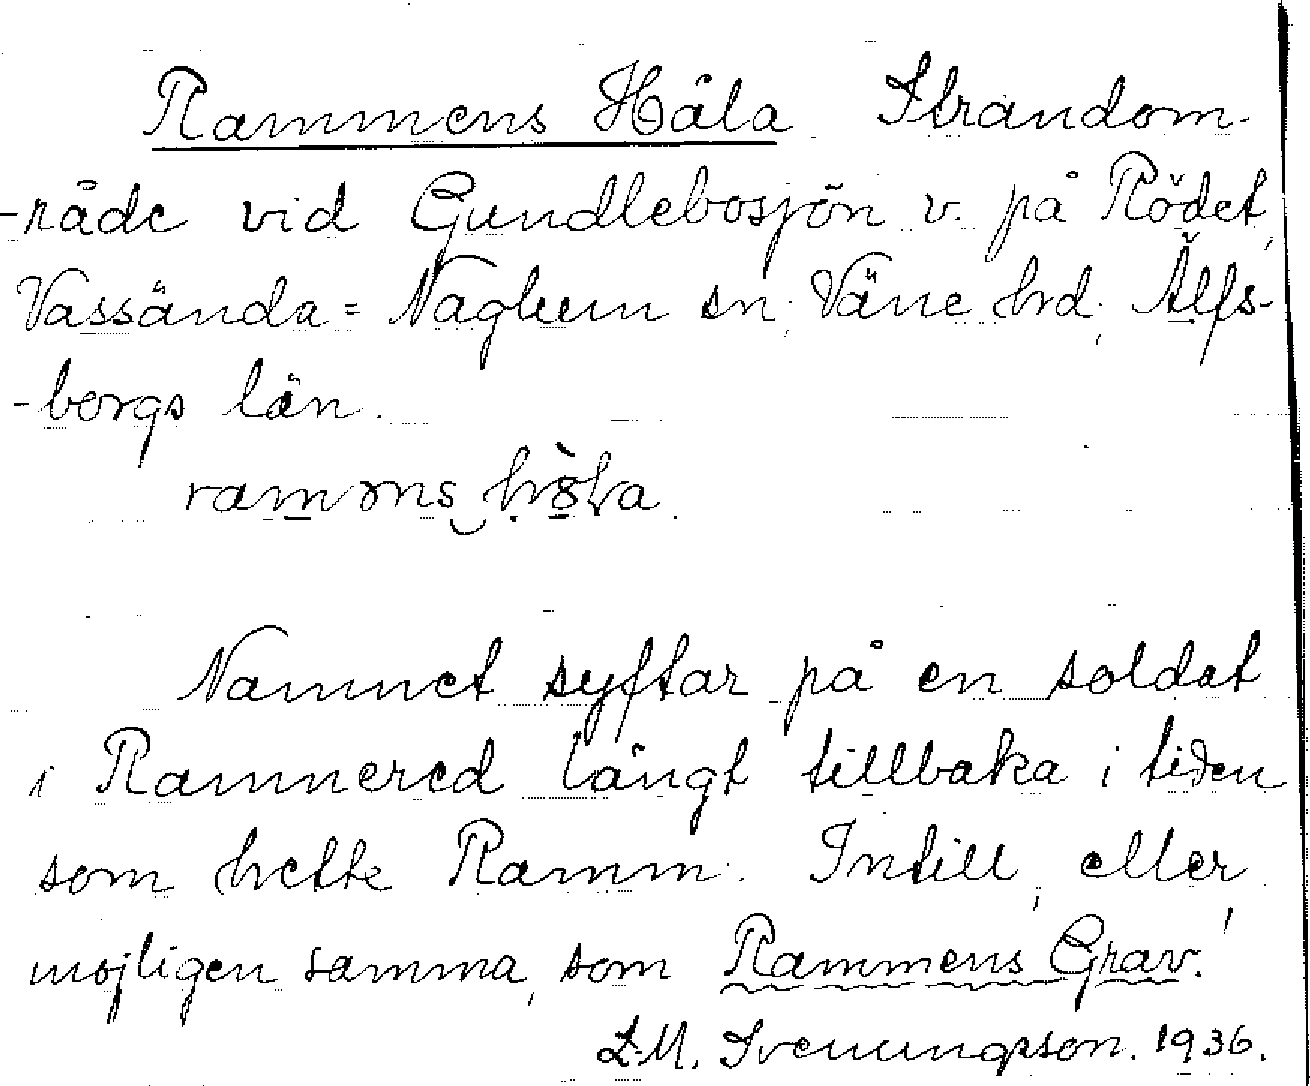 Rammens Håla Strandom-
-råde vid Gundlebosjön v. på Rödet,
Vassända-Naglum sn, Väne hrd, Älfs-
-borgs län.
Namnet syftar på en soldat
i Ramnered långt tillbaka i tiden
som hette Ramm. Intill, eller,
mojligen samma, som Rammens Grav!
L.M. Svenungsson. 1936.